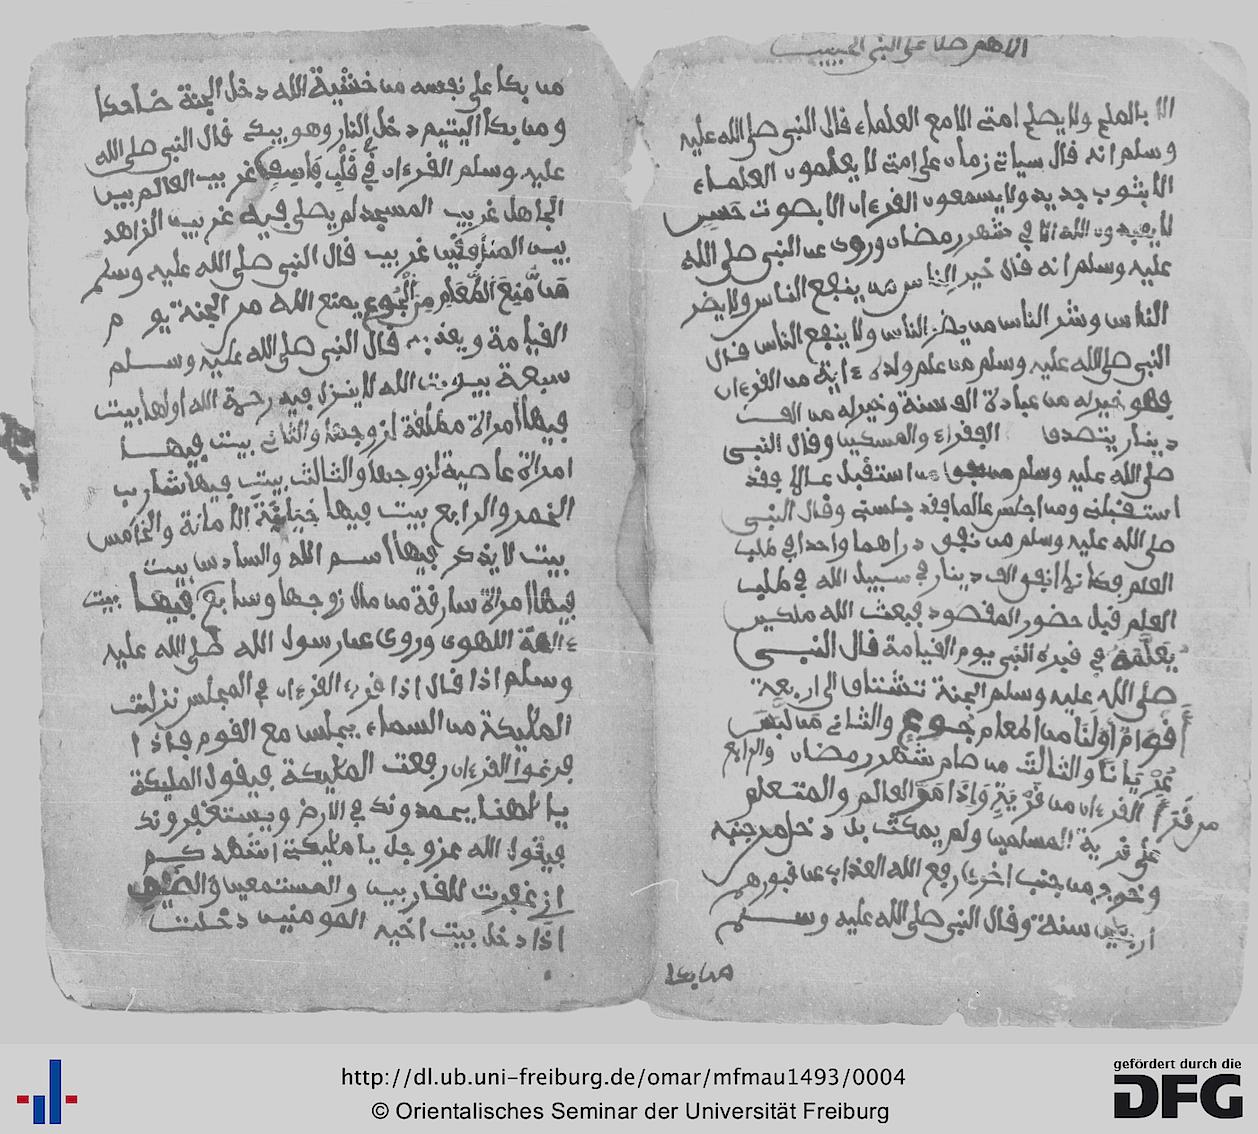 اللهم صل على النبي الحبيب
الا بالملح ولا يصلح امتي الا مع العلماء فال النبي صلى الله عليه
وسلم انه فال سياتي زمان على امتي لا يعلمون العلماء
الا بثوب جديد ولا يسمعون الفرءان الا بصوت حسن
لا يعبدون الله الا في شهر رمضان وروى عن النبي صلى الله
عليه وسلم انه فال خير الناس من ينفع الناس ولا يضر
الناس وشر الناس من يضر الناس ولا ينفع الناس فال
النبي صلى الله عليه وسلم من علم ولده ءاية من الفرءان
فهو خير له من عبادة الف سنة وخير له من الف
دينار يتصدق الففراء والمسكين وفال النبي
صلى الله عليه وسلم من استفبل عالما ففد
استفبلني ومن اجلس عالما ففد جلسني وفال النبي
صلى الله عليه وسلم من نفق دراهما واحدا في طلب
العلم فكانما انفق الف دينار في سبيل الله في طلب
العلم فبل حضور المفصود فبعث الله ملكين
يعلمه في فبره النبي يوم الفيامة فال النبي
صلى الله عليه وسلم الجنة تشتاق الى اربعة
أفوام أولنا من الطعام جوع والثاني من لبس
عريانا والثالث من صام شهر رمضان والرابع
من فرأ الفرءان من فرية وإذا مر العالم والمتعلم
على فرية المسلمين ولم يمكث بل دخل من جنبه
وخرج من جنب اخر رفع الله العذاب عن فبورهم
اربعين سنة وفال النبي صلى الله عليه وسلم
من بكا
من بكا على نفسه من خشية الله دخل الجنة ضاحكا
ومن بكا اليتيم دخل النار وهو يبكي فال النبي صلى الله
عليه وسلم الفرءان في فلب فاسق غريب العالم بين
الجاهل غريب المسجد لم يصلى فيه غريب الزاهد
بين المنافقين غريب فال النبي صلى الله عليه وسلم
من منع الطعام من الجوع يمنع الله من الجنة يوم
الفيامة ويعذبه فال النبي صلى الله عليه وسلم
سبعة بيوت الله لا ينزل فيه رحمة الله اولها بيت
فيها امراة مطلفة لزوجها والثاني بيت فيها
امراة عاصية لزوجها والثالث بيت فيها شارب
الخمر والرابع بيت فيها خيانة الامانة والخامس
بيت لا يذكر فيها اسم الله والسادس بيت
فيها امراة سارفة من مال زوجها وسابع فيها بيت
ءالة اللهوى وروى عن رسول الله صلى الله عليه
وسلم اذا فال اذا فرء الفرءان في المجلس نزلت
المليكة من السماء يجلس مع الفوم فإذا
فرغوا الفرءان رفعت المليكة فيفول المليكة
يا الهنا يحمدونك في الارض ويستغفرونك
فيفول الله عز وجل يا مليكتي اشهدكم
اني غفرت للفاريين والمستمعين والضيف
اذا دخل بيت اخيه المومنين دخلت
http://dl.ub.uni-freiburg.de/omar/mfmau1493/0004
© Orientalisches Seminar der Universität Freiburg
gefördert durch die
DFG